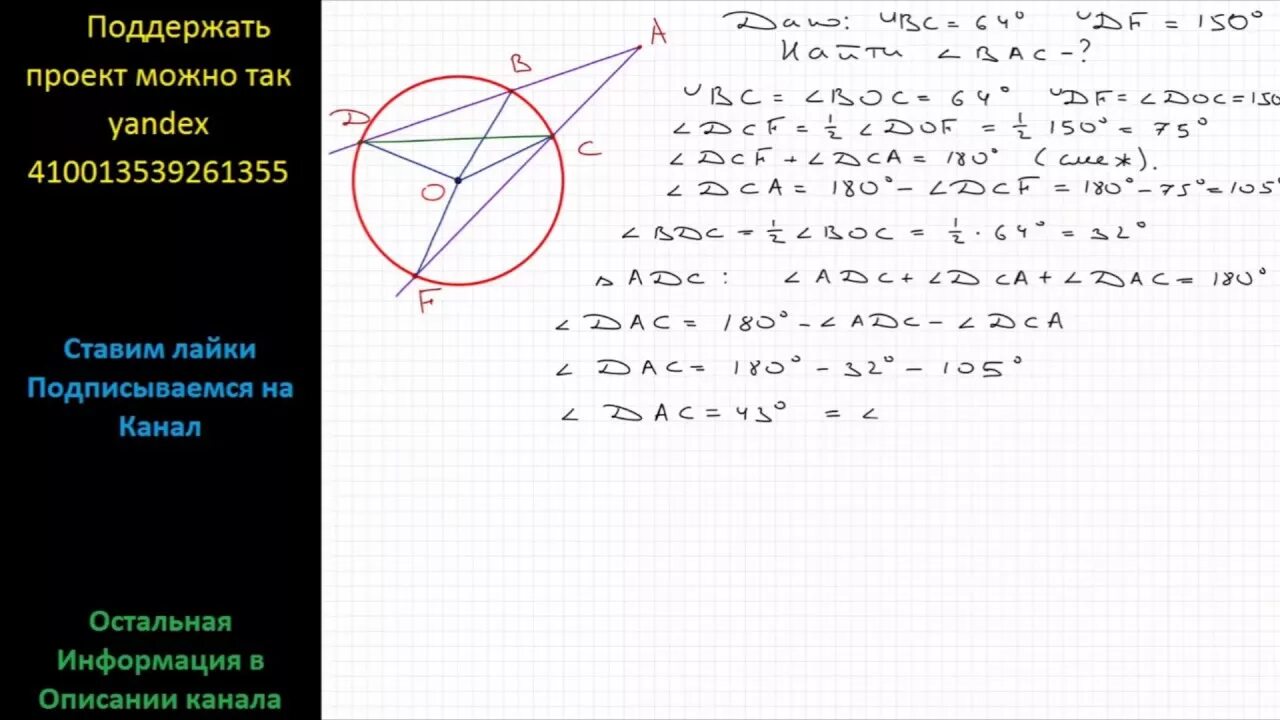 Поддержать
проект можно так
yandex
410013539261355
Ставим лайки
Подписываемся на
Канал
Остальная
Информация в
Описании канала
A
B
D
C
O
F
Дано: ◡BC = 64° ◡DF = 150°
Найти ∠BAC - ?
◡BC = ∠BOC = 64° ◡DF = ∠DOC = 150
∠DCF = 1/2 ∠DOF = 1/2 150° = 75°
∠DCF + ∠DCA = 180° (смеж).
∠DCA = 180° - ∠DCF = 180° - 75° = 105°
∠BDC = 1/2 ∠BOC = 1/2 · 64° = 32°
△ADC: ∠ADC + ∠DCA + ∠DAC = 180°
∠DAC = 180° - ∠ADC - ∠DCA
∠DAC = 180° - 32° - 105°
∠DAC = 43° = ∠